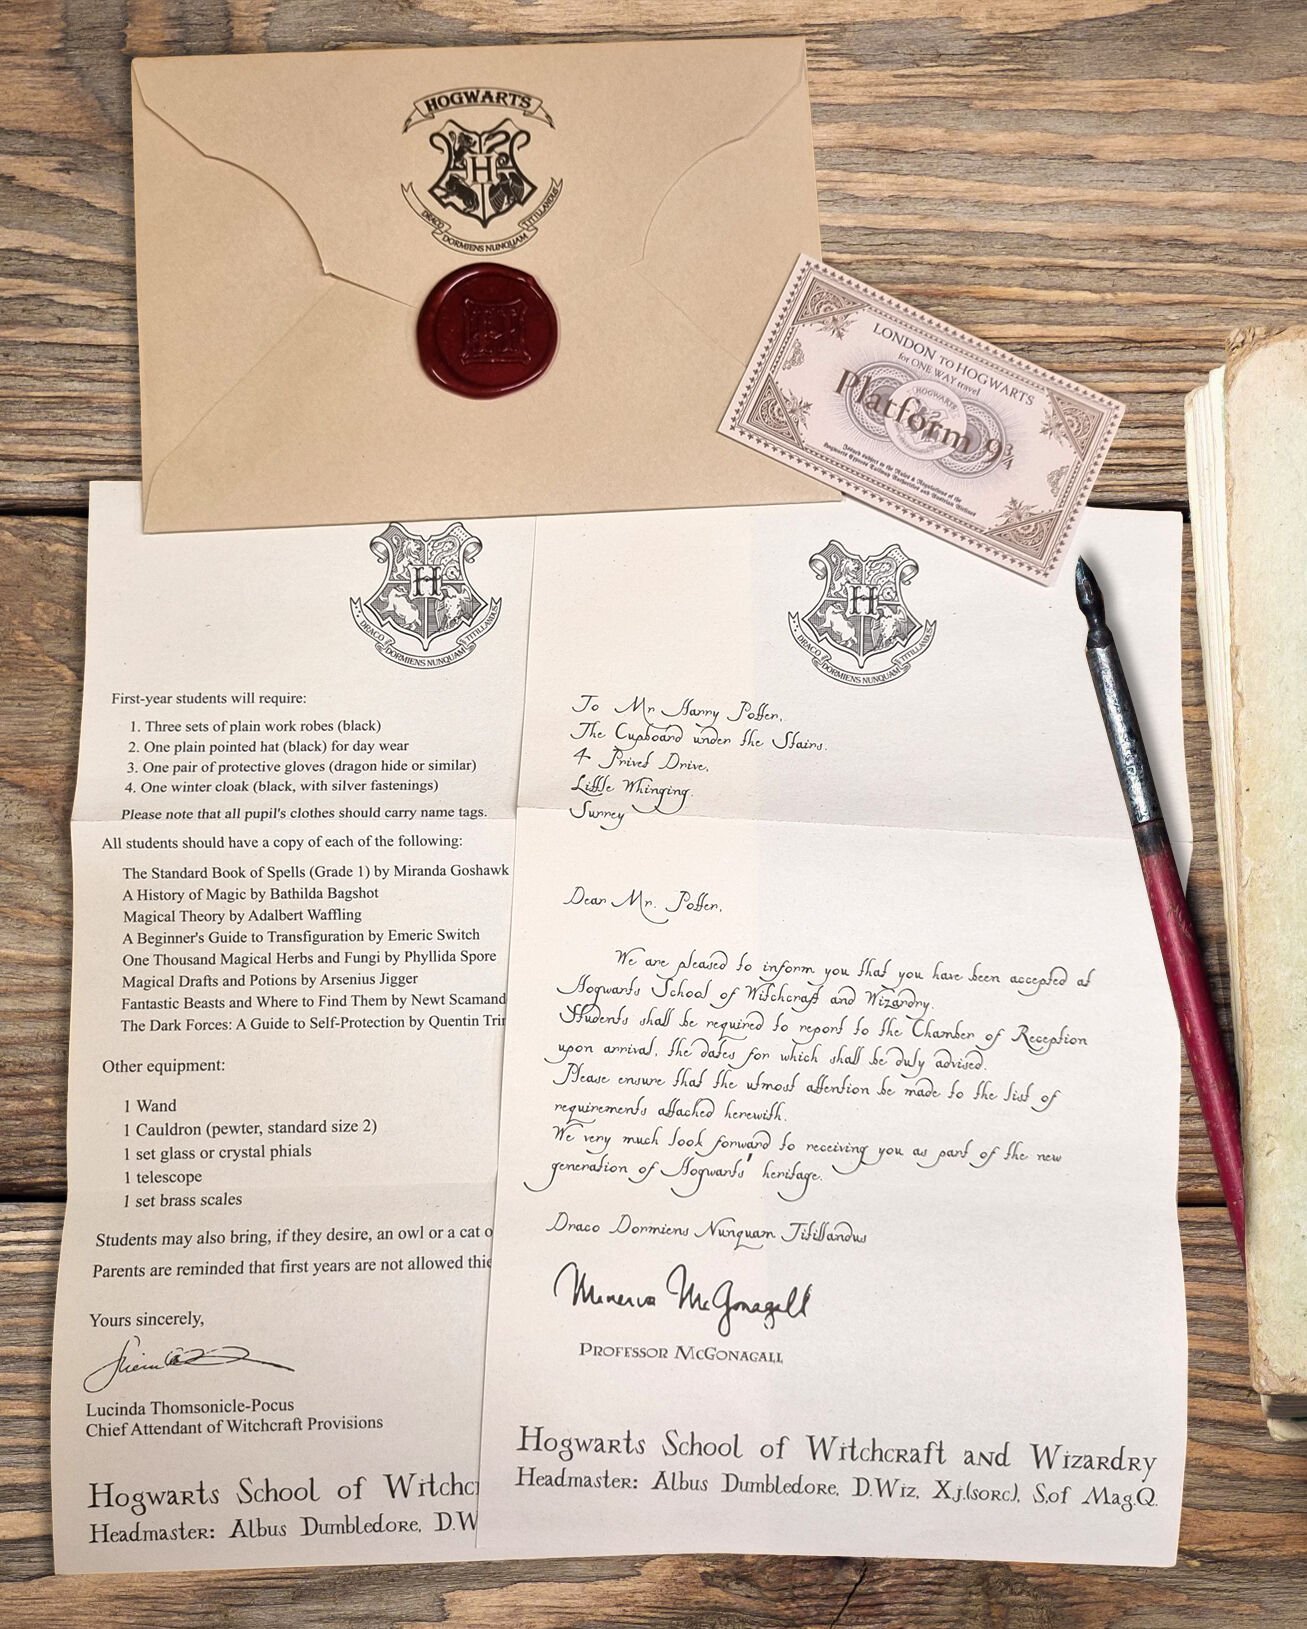 HOGWARTS
H
DRACO DORMIENS NUNQUAM TITILLANDUS
H
LONDON TO HOGWARTS
for ONE WAY travel
HOGWARTS
Platform 9¾
H
DRACO DORMIENS NUNQUAM TITILLANDUS
First-year students will require:
1. Three sets of plain work robes (black)
2. One plain pointed hat (black) for day wear
3. One pair of protective gloves (dragon hide or similar)
4. One winter cloak (black, with silver fastenings)
Please note that all pupil's clothes should carry name tags.
All students should have a copy of each of the following:
The Standard Book of Spells (Grade 1) by Miranda Goshawk
A History of Magic by Bathilda Bagshot
Magical Theory by Adalbert Waffling
A Beginner's Guide to Transfiguration by Emeric Switch
One Thousand Magical Herbs and Fungi by Phyllida Spore
Magical Drafts and Potions by Arsenius Jigger
Fantastic Beasts and Where to Find Them by Newt Scamand
The Dark Forces: A Guide to Self-Protection by Quentin Trin
Other equipment:
1 Wand
1 Cauldron (pewter, standard size 2)
1 set glass or crystal phials
1 telescope
1 set brass scales
Students may also bring, if they desire, an owl or a cat o
Parents are reminded that first years are not allowed thie
Yours sincerely,
Lucinda Thomsonicle-Pocus
Chief Attendant of Witchcraft Provisions
Hogwarts School of Witchc
Headmaster: Albus Dumbledore, D.W
H
DRACO DORMIENS NUNQUAM TITILLANDUS
To Mr Harry Potter,
The Cupboard under the Stairs.
4 Privet Drive,
Little Whinging.
Surrey
Dear Mr. Potter,
We are pleased to inform you that you have been accepted at
Hogwarts School of Witchcraft and Wizardry.
Students shall be required to report to the Chamber of Reception
upon arrival, the dates for which shall be duly advised.
Please ensure that the utmost attention be made to the list of
requirements attached herewith.
We very much look forward to receiving you as part of the new
generation of Hogwarts' heritage.
Draco Dormiens Nunquam Titillandus
Minerva McGonagall
PROFESSOR McGONAGALL
Hogwarts School of Witchcraft and Wizardry
Headmaster: Albus Dumbledore, D.Wiz, X.j.(sorc), S.of Mag.Q.